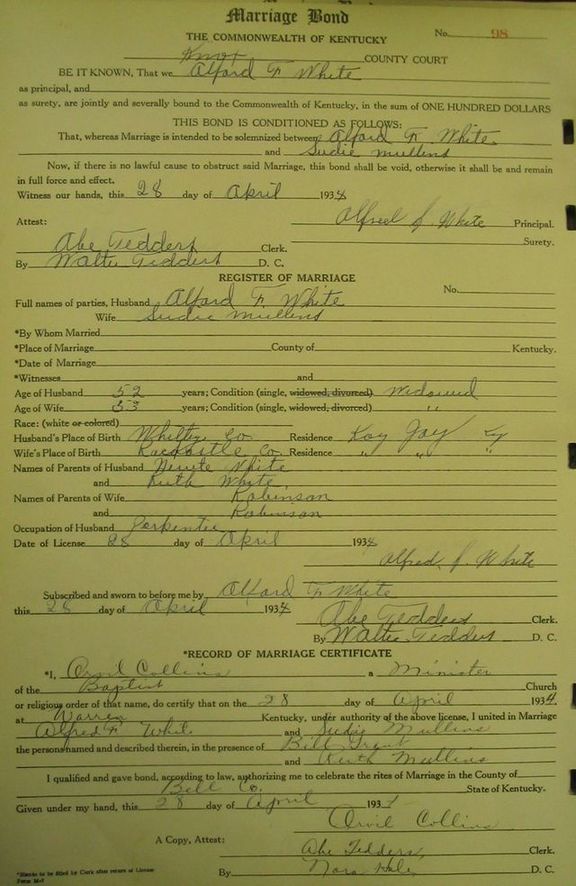 Marriage Bond
THE COMMONWEALTH OF KENTUCKY
No. 98
Knox COUNTY COURT
BE IT KNOWN, That we Alford F. White
as principal, and
as surety, are jointly and severally bound to the Commonwealth of Kentucky, in the sum of ONE HUNDRED DOLLARS
THIS BOND IS CONDITIONED AS FOLLOWS:
That, whereas Marriage is intended to be solemnized between Alford F. White
and Sudie Mullens
Now, if there is no lawful cause to obstruct said Marriage, this bond shall be void, otherwise it shall be and remain
in full force and effect.
Witness our hands, this 28 day of April 1934
Attest: Alfred J. White Principal.
Surety.
Abe Tedders Clerk.
By Walter Tedders D. C.
REGISTER OF MARRIAGE
Full names of parties, Husband Alford F. White No.
Wife Sudie Mullens
*By Whom Married
*Place of Marriage County of Kentucky.
*Date of Marriage
*Witnesses and
Age of Husband 52 years; Condition (single, widowed, divorced) Widowed
Age of Wife 53 years; Condition (single, widowed, divorced) "
Race: (white or colored)
Husband's Place of Birth Whitley Co. Residence Kay Jay Ky
Wife's Place of Birth Rockcastle Co. Residence " " "
Names of Parents of Husband White
and Ruth White
Names of Parents of Wife Robinson
and Robinson
Occupation of Husband Perpentie
Date of License 28 day of April 1934
Alfred J. White
Subscribed and sworn to before me by Alford F. White
this 28 day of April 1934
Abe Tedders Clerk.
By Walter Tedders D. C.
*RECORD OF MARRIAGE CERTIFICATE
*I, Orvil Collins a Minister
of the Baptist Church
or religious order of that name, do certify that on the 28 day of April 1934
at Warren Kentucky, under authority of the above license, I united in Marriage
Alfred F. White and Sudie Mullins
the persons named and described therein, in the presence of Bill
and Ruth Mullins
I qualified and gave bond, according to law, authorizing me to celebrate the rites of Marriage in the County of
Bell Co. State of Kentucky.
Given under my hand, this 28 day of April 193
Orvil Collins
A Copy, Attest: Abe Tedders, Clerk.
By Nora D. C.
*Blanks to be filled by Clerk after return of License